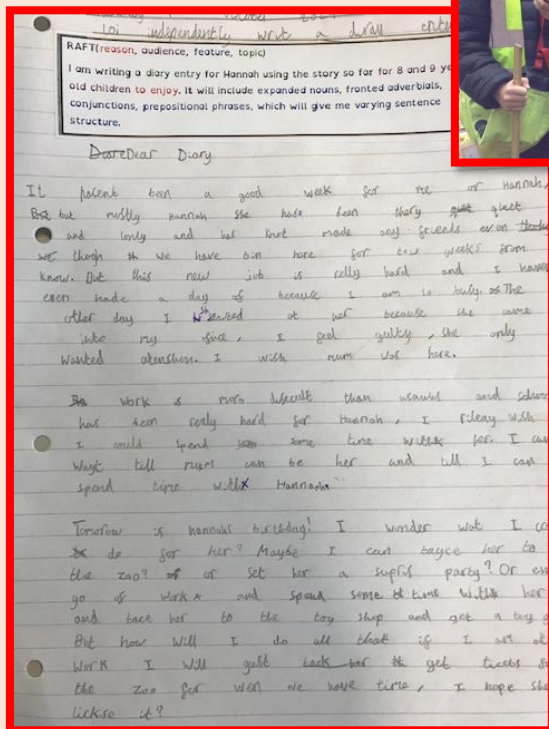 LO: independently write a diary
RAFT(reason, audience, feature, topic)
I am writing a diary entry for Hannah using the story so far for 8 and 9 ye
old children to enjoy. It will include expanded nouns, fronted adverbials,
conjunctions, prepositional phrases, which will give me varying sentence
structure.
Dear Diary
It been a good week for me or Hannah,
but mostly Hannah she have been quiet
and lonly and has knot made any friends even
though we have bin here for weeks from
know. But this new job is relly hard and I
even made a day of because I am so busy. The
other day I at her because she came
into my , I feel guilty, she only
wanted atenshon. I wish mum was here.
work is than and
has been realy hard for Hannah, I wish
I could spend some time with her. I
till mum can be her and till I can
spend time with Hannah
Tomorow is hannahs birthday! I wonder wat I
do for her? Maybe I can her to
the zoo? or set her a party? Or
go of work and spend some time with her
and tace her to the toy shop and get a toy
But how will I do all that if I am at
work I will gust get
the zoo for wen we have time, I hope she
lickso it?